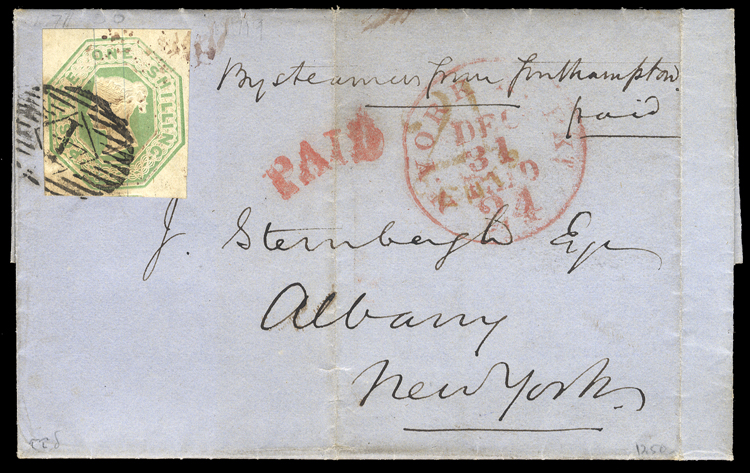 ONE SHILLING
1
By steamer from Southampton
paid
PAID
YORK
DEC
31
PAID
24
J. Sternbergh Esqr
Albany
New York
1250